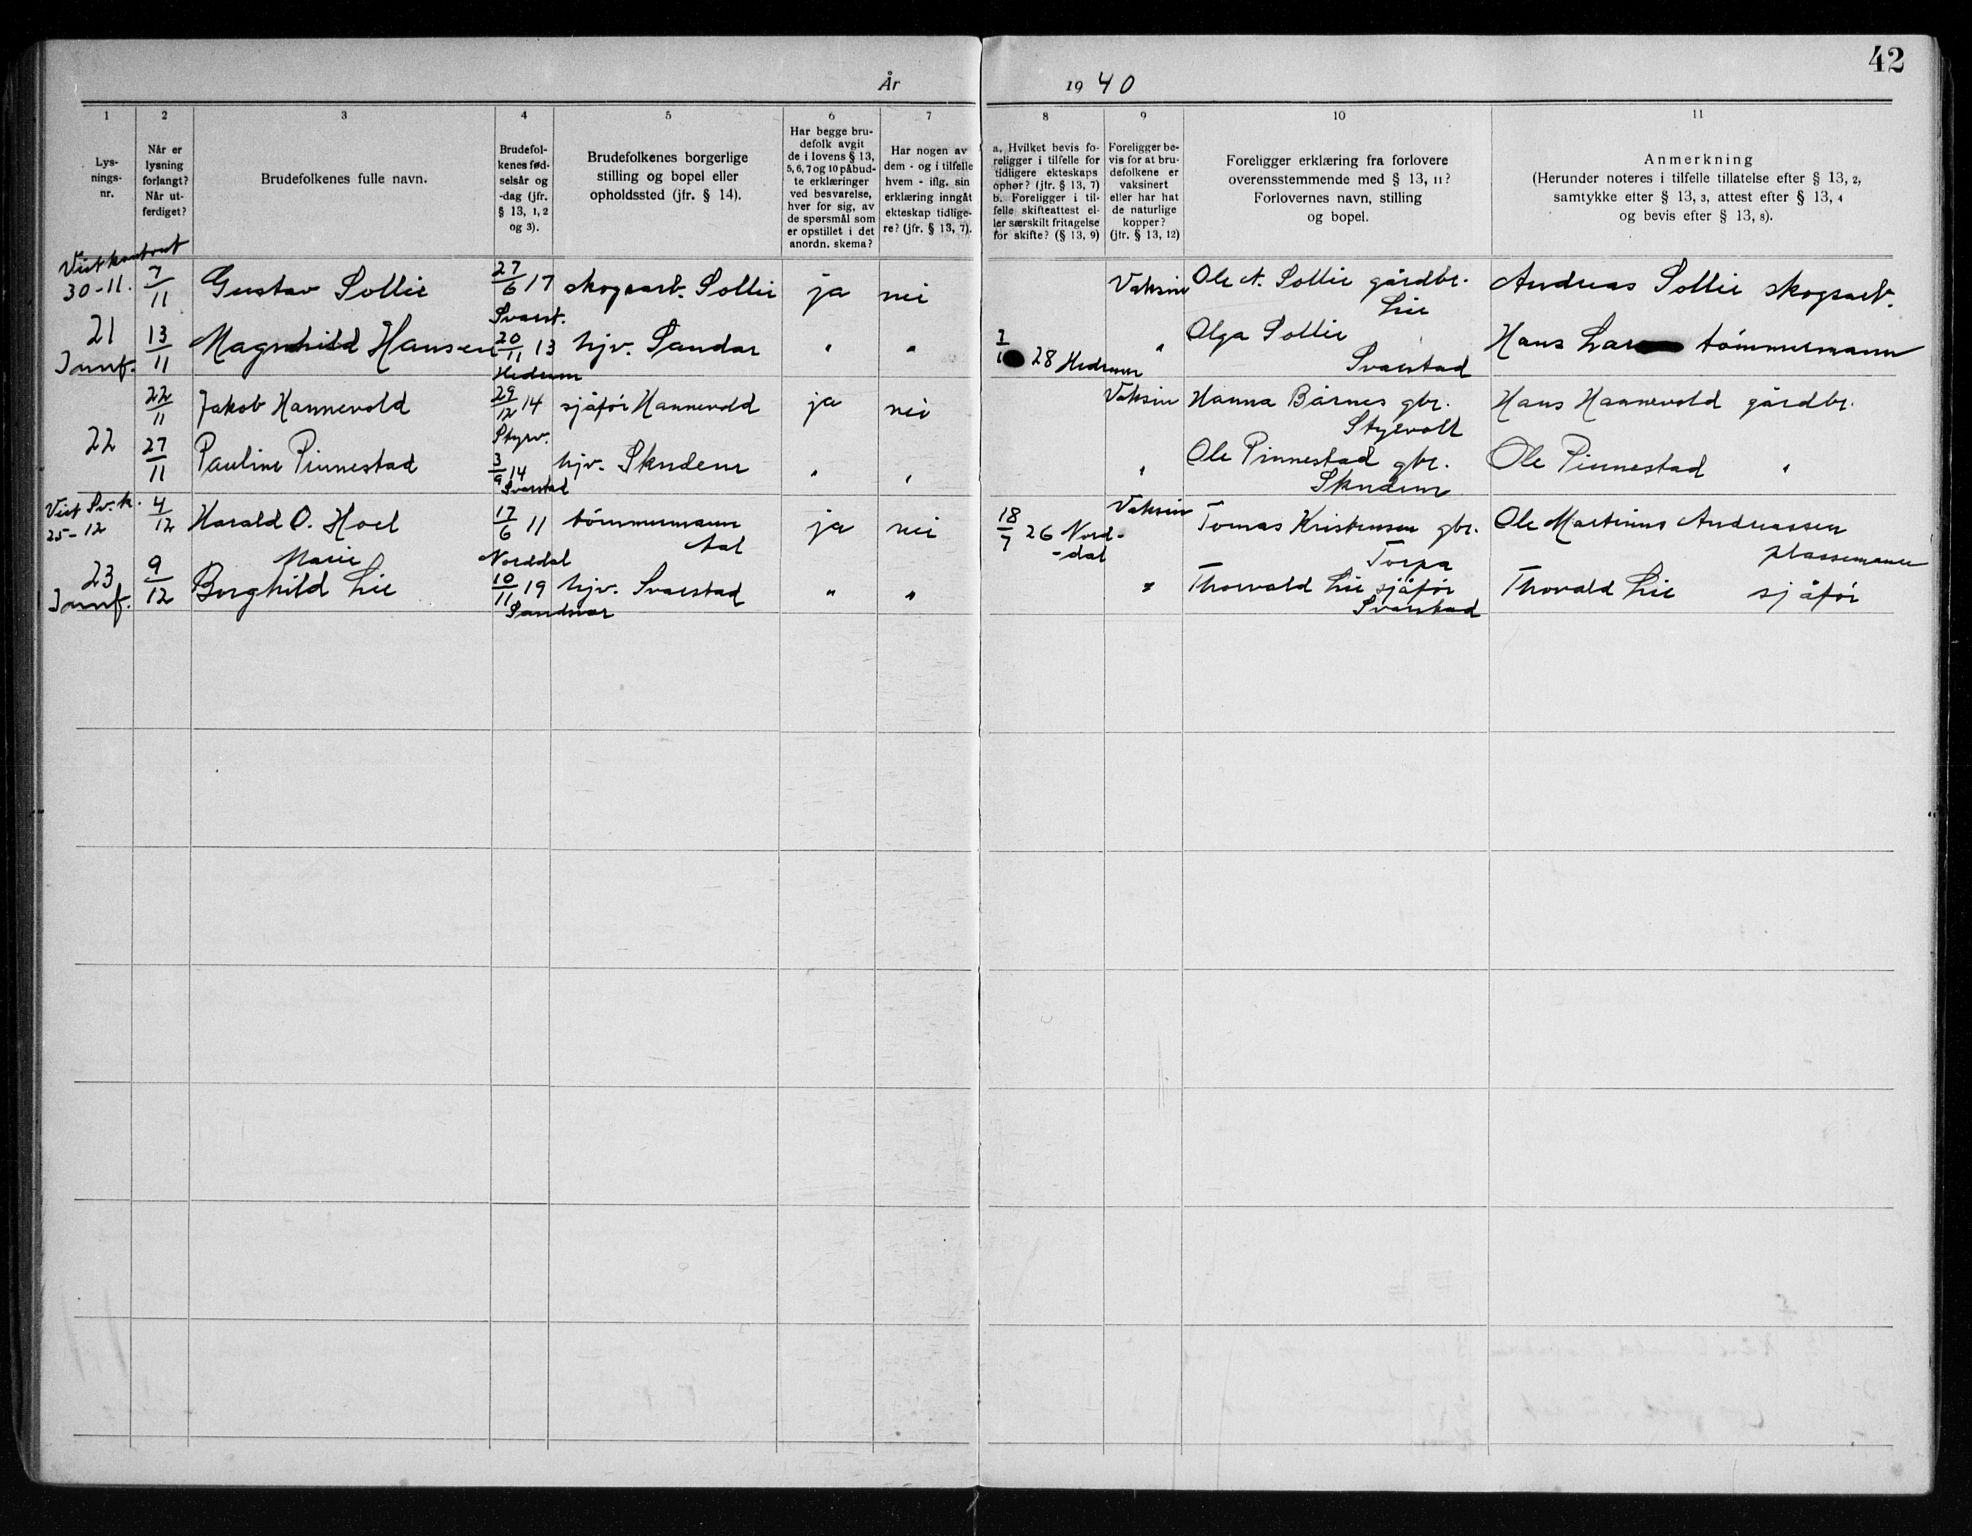 42
År 1940
1 2 3 4 5 6 7 8 9 10 11
Lys-
nings-
nr.
Når er
lysning
forlangt?
Når ut-
ferdiget?
Brudefolkenes fulle navn.
Brudefol-
kenes fød-
selsår og
-dag (jfr.
§ 13, 1, 2
og 3).
Brudefolkenes borgerlige
stilling og bopel eller
opholdssted (jfr. § 14).
Har begge bru-
defolk avgit
de i lovens § 13,
5, 6, 7 og 10 påbud-
te erklæringer
ved besvarelse,
hver for sig, av
de spørsmål som
er opstillet i det
anordn. skema?
Har nogen av
dem - og i tilfelle
hvem - iflg. sin
erklæring inngåt
ekteskap tidlige-
re? (jfr. § 13, 7).
a. Hvilket bevis fo-
religger i tilfelle for
tidligere ekteskaps
ophør? (jfr. § 13, 7)
b. Foreligger i til-
felle skifteattest el-
ler særskilt fritagelse
for skifte? (§ 13, 9)
Foreligger be-
vis for at bru-
defolkene er
vaksinert
eller har hat
de naturlige
kopper?
(jfr. § 13, 12)
Foreligger erklæring fra forlovere
overensstemmende med § 13, 11?
Forlovernes navn, stilling
og bopel.
Anmerkning
(Herunder noteres i tilfelle tillatelse efter § 13, 2,
samtykke efter § 13, 3, attest efter § 13, 4
og bevis efter § 13, 8).
30-11. 7/11 Gustav Sollie 27/6 17 skogsarb. Sollie ja nei Vaksin Ole N. Sollie gårdbr. Andreas Sollie skogsarb.
Svarst. Lie
21 13/11 Magnhild Hansen 20/11 13 hjv. Sandar " " 28 Hedrum " Olga Sollie Hans tømmermann
Jomf. Hedrum Svarstad
22/11 Jakob Hannevold 29/12 14 sjåfør Hannevold ja nei Vaksin Hanna Bårnes gbr. Hans Hannevold gårdbr.
Styrv. Styrvoll
22 27/11 Pauline Pinnestad 3/9 14 hjv. Skudem " " " Ole Pinnestad gbr. Ole Pinnestad "
Svarstad Skudem
Vist Sv. k. 4/12 Harald O. Hoel 17/6 11 tømmermann ja nei 18/7 26 Nord- Vaksin Tomas Kristensen gbr. Ole Martinius Andreassen
25-12 Norddal Aal -dal Torpa plassemann
Marie
23 9/12 Borghild Lie 10/11 19 hjv. Svarstad " " " Thorvald Lie sjåfør Thorvald Lie sjåfør
Jomf. Sandsvær Svarstad